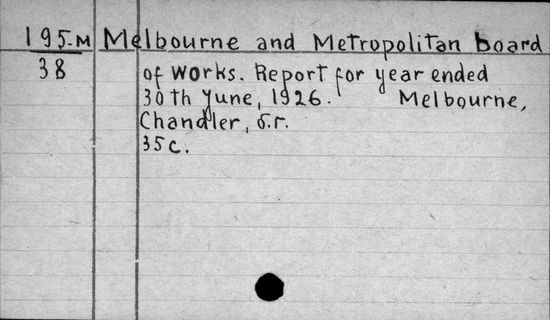 195-M Melbourne and Metropolitan board
38 of works. Report for year ended
30th June, 1926. Melbourne,
Chandler, б.г.
35 c.